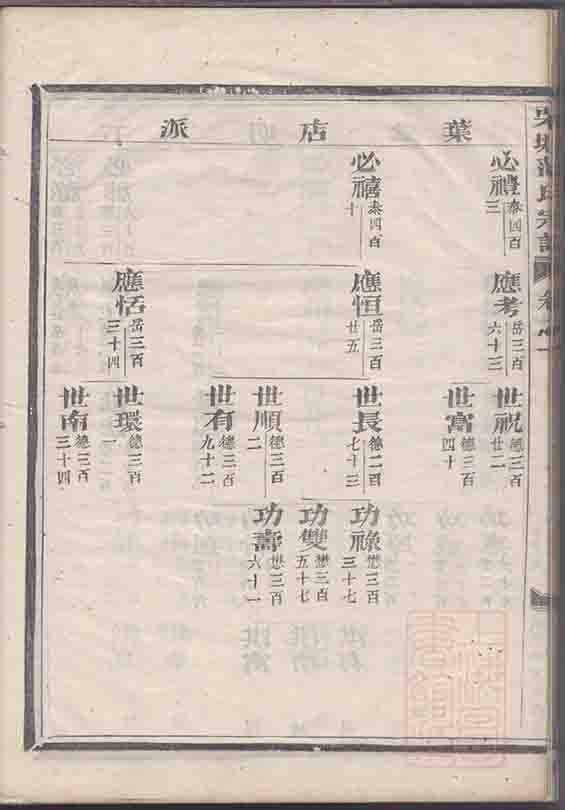 葉店派
必禮 泰四百三
必禧 泰四百十
應考 岳三百六十三
應恒 岳三百廿五
應恬 岳三百三十四
世祝 德三百廿二
世富 德三百四十
世長 德二百七十三
世順 德三百二
世有 德三百九十二
世環 德三百一
世南 德三百三十四
功祿 懋三百三十七
功雙 懋三百五十七
功壽 懋三百六十一